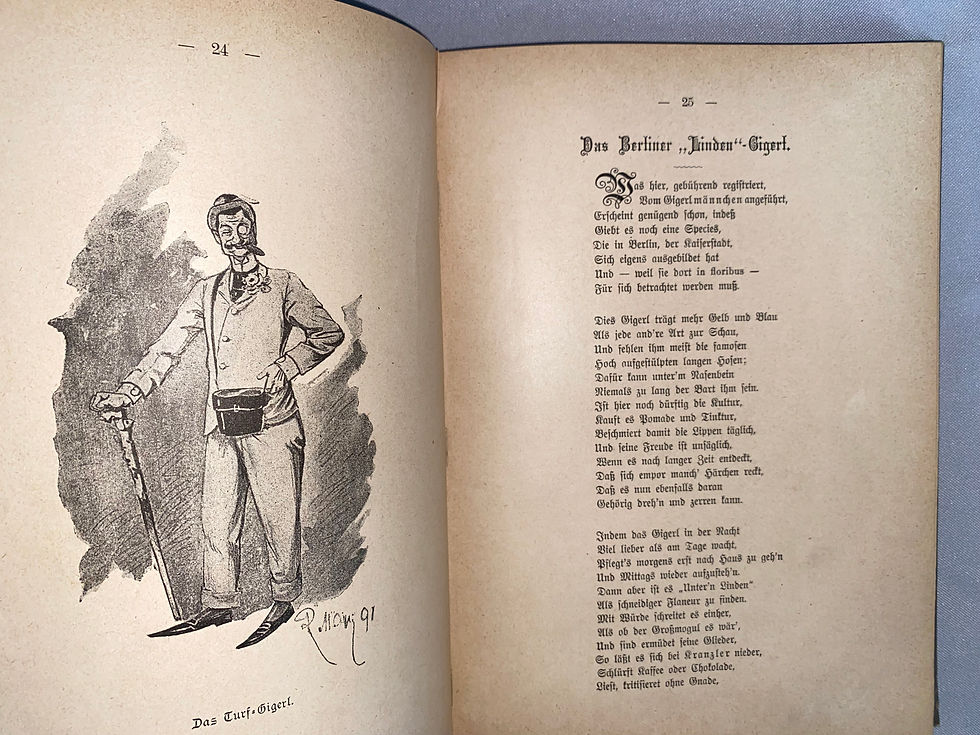 — 24 —
91
Das Turf-Gigerl.
— 25 —
Das Berliner „Linden“-Gigerl.
Was hier, gebührend registriert,
Vom Gigerlmännchen angeführt,
Erscheint genügend schon, indeß
Giebt es noch eine Species,
Die in Berlin, der Kaiserstadt,
Sich eigens ausgebildet hat
Und — weil sie dort in floribus —
Für sich betrachtet werden muß.
Dies Gigerl trägt mehr Gelb und Blau
Als jede and're Art zur Schau,
Und fehlen ihm meist die famosen
Hoch aufgestülpten langen Hosen;
Dafür kann unter'm Nasenbein
Niemals zu lang der Bart ihm sein.
Ist hier noch dürftig die Kultur,
Kauft es Pomade und Tinktur,
Beschmiert damit die Lippen täglich,
Und seine Freude ist unsäglich,
Wenn es nach langer Zeit entdeckt,
Daß sich empor manch' Härchen reckt,
Daß es nun ebenfalls daran
Gehörig dreh'n und zerren kann.
Indem das Gigerl in der Nacht
Viel lieber als am Tage wacht,
Pflegt's morgens erst nach Haus zu geh'n
Und Mittags wieder aufzusteh'n.
Dann aber ist es „Unter'n Linden“
Als schneidiger Flaneur zu finden.
Mit Würde schreitet es einher,
Als ob der Großmogul es wär',
Und sind ermüdet seine Glieder,
So läßt es sich bei Kranzler nieder,
Schlürft Kaffee oder Chokolade,
Liest, kritisieret ohne Gnade,